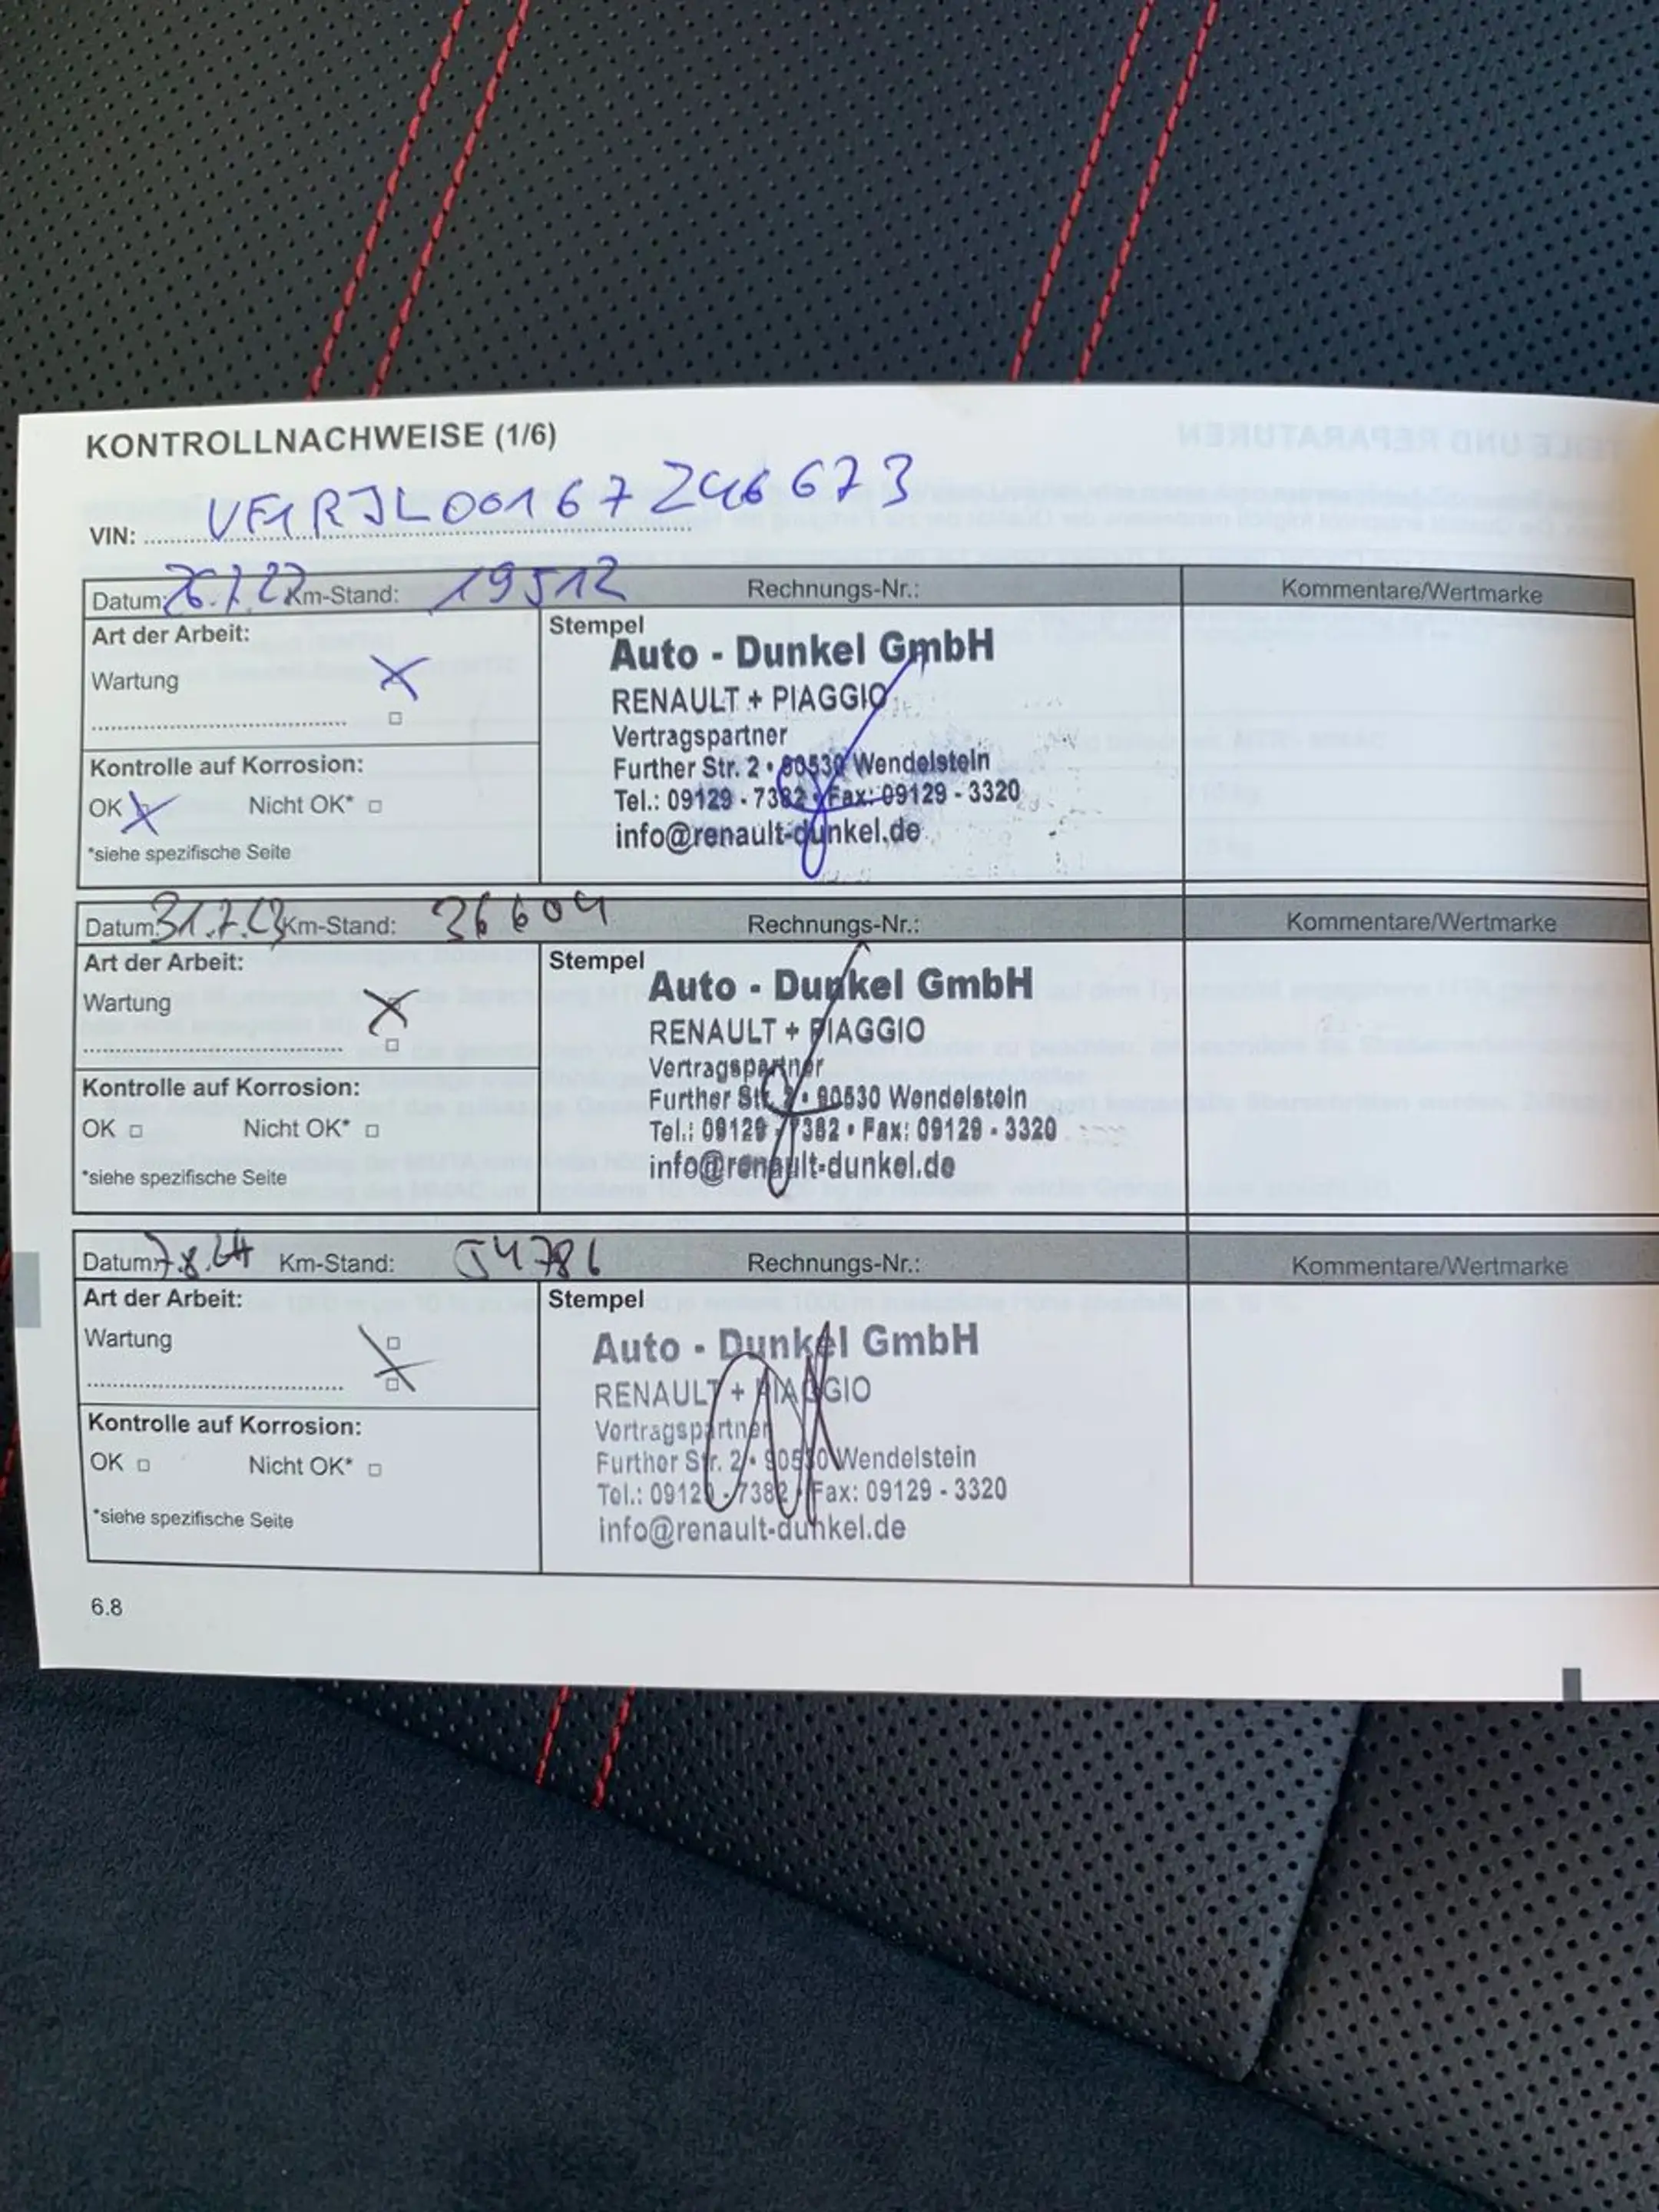 KONTROLLNACHWEISE (1/6)
VIN: VF1RJL00167246673
Datum: 26.7.22 Km-Stand: 19512 Rechnungs-Nr.: Kommentare/Wertmarke
Art der Arbeit:
Wartung
Kontrolle auf Korrosion:
OK Nicht OK*
*siehe spezifische Seite
Stempel
Auto - Dunkel GmbH
RENAULT + PIAGGIO
Vertragspartner
Further Str. 2 • 90530 Wendelstein
Tel.: 09129 - 7382 • Fax: 09129 - 3320
info@renault-dunkel.de
Datum: 31.7.23 Km-Stand: 36604 Rechnungs-Nr.: Kommentare/Wertmarke
Art der Arbeit:
Wartung
Kontrolle auf Korrosion:
OK Nicht OK*
*siehe spezifische Seite
Stempel
Auto - Dunkel GmbH
RENAULT + PIAGGIO
Vertragspartner
Further Str. 2 • 90530 Wendelstein
Tel.: 09129 - 7382 • Fax: 09129 - 3320
info@renault-dunkel.de
Datum: 7.8.24 Km-Stand: 54786 Rechnungs-Nr.: Kommentare/Wertmarke
Art der Arbeit:
Wartung
Kontrolle auf Korrosion:
OK Nicht OK*
*siehe spezifische Seite
Stempel
Auto - Dunkel GmbH
RENAULT + PIAGGIO
Vertragspartner
Further Str. 2 • 90530 Wendelstein
Tel.: 09129 - 7382 • Fax: 09129 - 3320
info@renault-dunkel.de
6.8